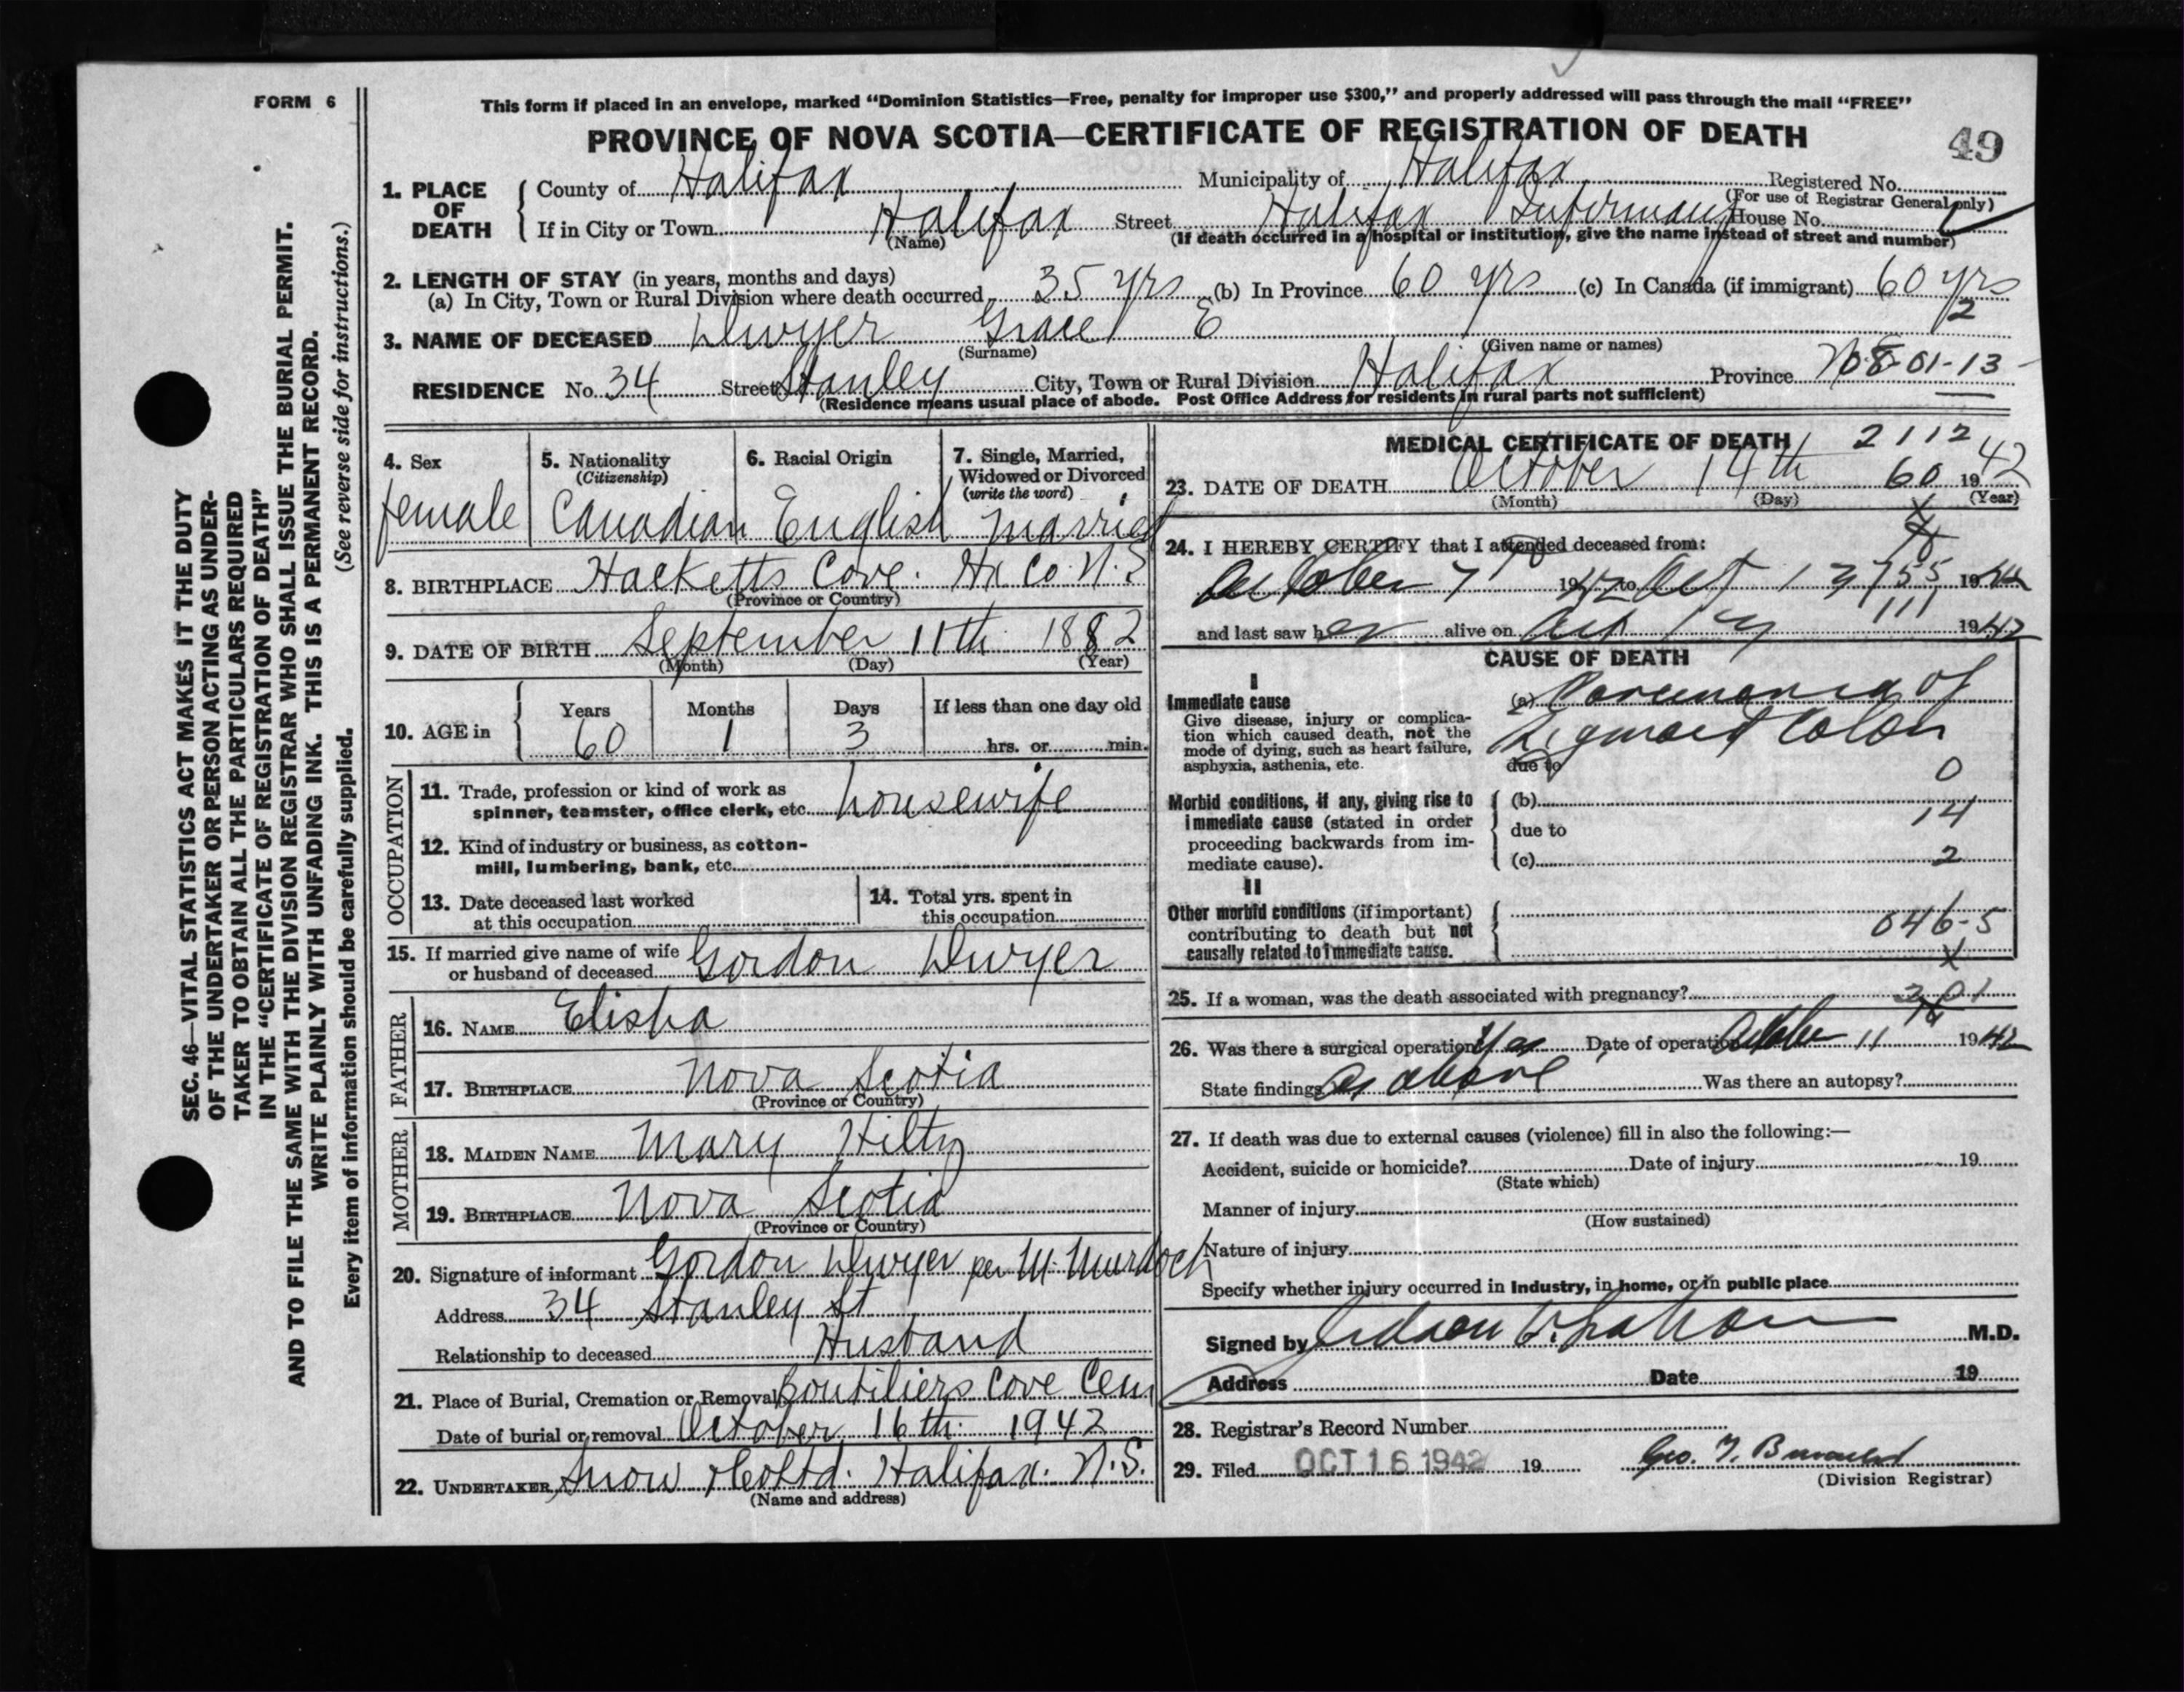 FORM 6
This form if placed in an envelope, marked “Dominion Statistics—Free, penalty for improper use $300,” and properly addressed will pass through the mail “FREE”
PROVINCE OF NOVA SCOTIA—CERTIFICATE OF REGISTRATION OF DEATH
49
1. PLACE OF DEATH
County of Halifax Municipality of Halifax Registered No.
(For use of Registrar General only)
If in City or Town Halifax Street Halifax Infirmary House No.
(Name) (If death occurred in a hospital or institution, give the name instead of street and number)
2. LENGTH OF STAY (in years, months and days)
(a) In City, Town or Rural Division where death occurred 35 yrs (b) In Province 60 yrs (c) In Canada (if immigrant) 60 yrs
2
3. NAME OF DECEASED Dwyer Grace E
(Surname) (Given name or names)
RESIDENCE No. 34 Street Stanley City, Town or Rural Division Halifax Province N.S. 01-13
(Residence means usual place of abode. Post Office Address for residents in rural parts not sufficient)
SEC. 46—VITAL STATISTICS ACT MAKES IT THE DUTY
OF THE UNDERTAKER OR PERSON ACTING AS UNDER-
TAKER TO OBTAIN ALL THE PARTICULARS REQUIRED
IN THE “CERTIFICATE OF REGISTRATION OF DEATH”
AND TO FILE THE SAME WITH THE DIVISION REGISTRAR WHO SHALL ISSUE THE BURIAL PERMIT.
WRITE PLAINLY WITH UNFADING INK. THIS IS A PERMANENT RECORD.
Every item of information should be carefully supplied. (See reverse side for instructions.)
4. Sex 5. Nationality 6. Racial Origin 7. Single, Married,
(Citizenship) Widowed or Divorced
(write the word)
female Canadian English married
8. BIRTHPLACE Hacketts Cove. Hx Co. N.S
(Province or Country)
9. DATE OF BIRTH September 11th 1882
(Month) (Day) (Year)
10. AGE in Years Months Days If less than one day old
60 1 3 hrs. or min.
OCCUPATION
11. Trade, profession or kind of work as
spinner, teamster, office clerk, etc. housewife
12. Kind of industry or business, as cotton-
mill, lumbering, bank, etc.
13. Date deceased last worked
at this occupation
14. Total yrs. spent in
this occupation
15. If married give name of wife
or husband of deceased Gordon Dwyer
FATHER
16. NAME Elisha
17. BIRTHPLACE Nova Scotia
(Province or Country)
MOTHER
18. MAIDEN NAME Mary Hiltz
19. BIRTHPLACE Nova Scotia
(Province or Country)
20. Signature of informant Gordon Dwyer per M. Murdoch
Address 34 Stanley St
Relationship to deceased Husband
21. Place of Burial, Cremation or Removal Boutiliers Cove Cem
Date of burial or removal October 16th 1942
22. UNDERTAKER Snow & Co Ltd. Halifax. N.S.
(Name and address)
MEDICAL CERTIFICATE OF DEATH
2112
23. DATE OF DEATH October 14th 60 1942
(Month) (Day) (Year)
24. I HEREBY CERTIFY that I attended deceased from:
October 7 1942 to Oct 13 755 1942
111
and last saw her alive on Oct 13 1942
CAUSE OF DEATH
I
Immediate cause
Give disease, injury or complica-
tion which caused death, not the
mode of dying, such as heart failure,
asphyxia, asthenia, etc.
(a) Carcinoma of
Sigmoid Colon
due to
0
Morbid conditions, if any, giving rise to
immediate cause (stated in order
proceeding backwards from im-
mediate cause).
(b)
14
due to
(c) 2
II
Other morbid conditions (if important)
contributing to death but not
causally related to immediate cause.
046-5
X
25. If a woman, was the death associated with pregnancy? 301
26. Was there a surgical operation Yes Date of operation October 11 1942
State findings As above Was there an autopsy?
27. If death was due to external causes (violence) fill in also the following:—
Accident, suicide or homicide? Date of injury 19
(State which)
Manner of injury
(How sustained)
Nature of injury
Specify whether injury occurred in industry, in home, or in public place
Signed by Judson V. Graham M.D.
Address Date 19
28. Registrar’s Record Number
29. Filed OCT 16 1942 19 Geo.
(Division Registrar)